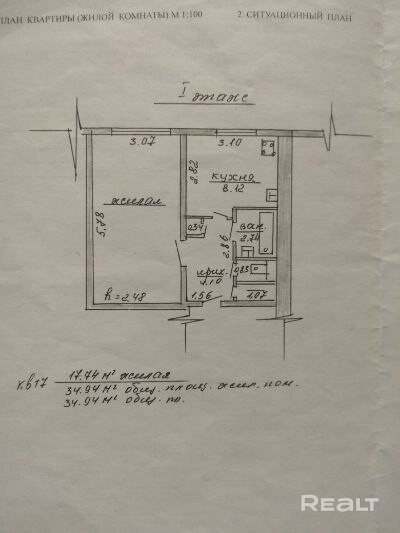 ПЛАН КВАРТИРЫ (ЖИЛОЙ КОМНАТЫ) М 1:100
2. СИТУАЦИОННЫЙ ПЛАН
I этаж
3.07 3.10
2.82
кухня
8.12
жилая
5.78
0.34
ван.
2.74
2.86
прих.
4.10
0.83
1.56
1.07
h=2.48
кв17
17.74 м² жилая
34.94 м² общ. площ. жил. пом.
34.94 м² общ. по.
REALT